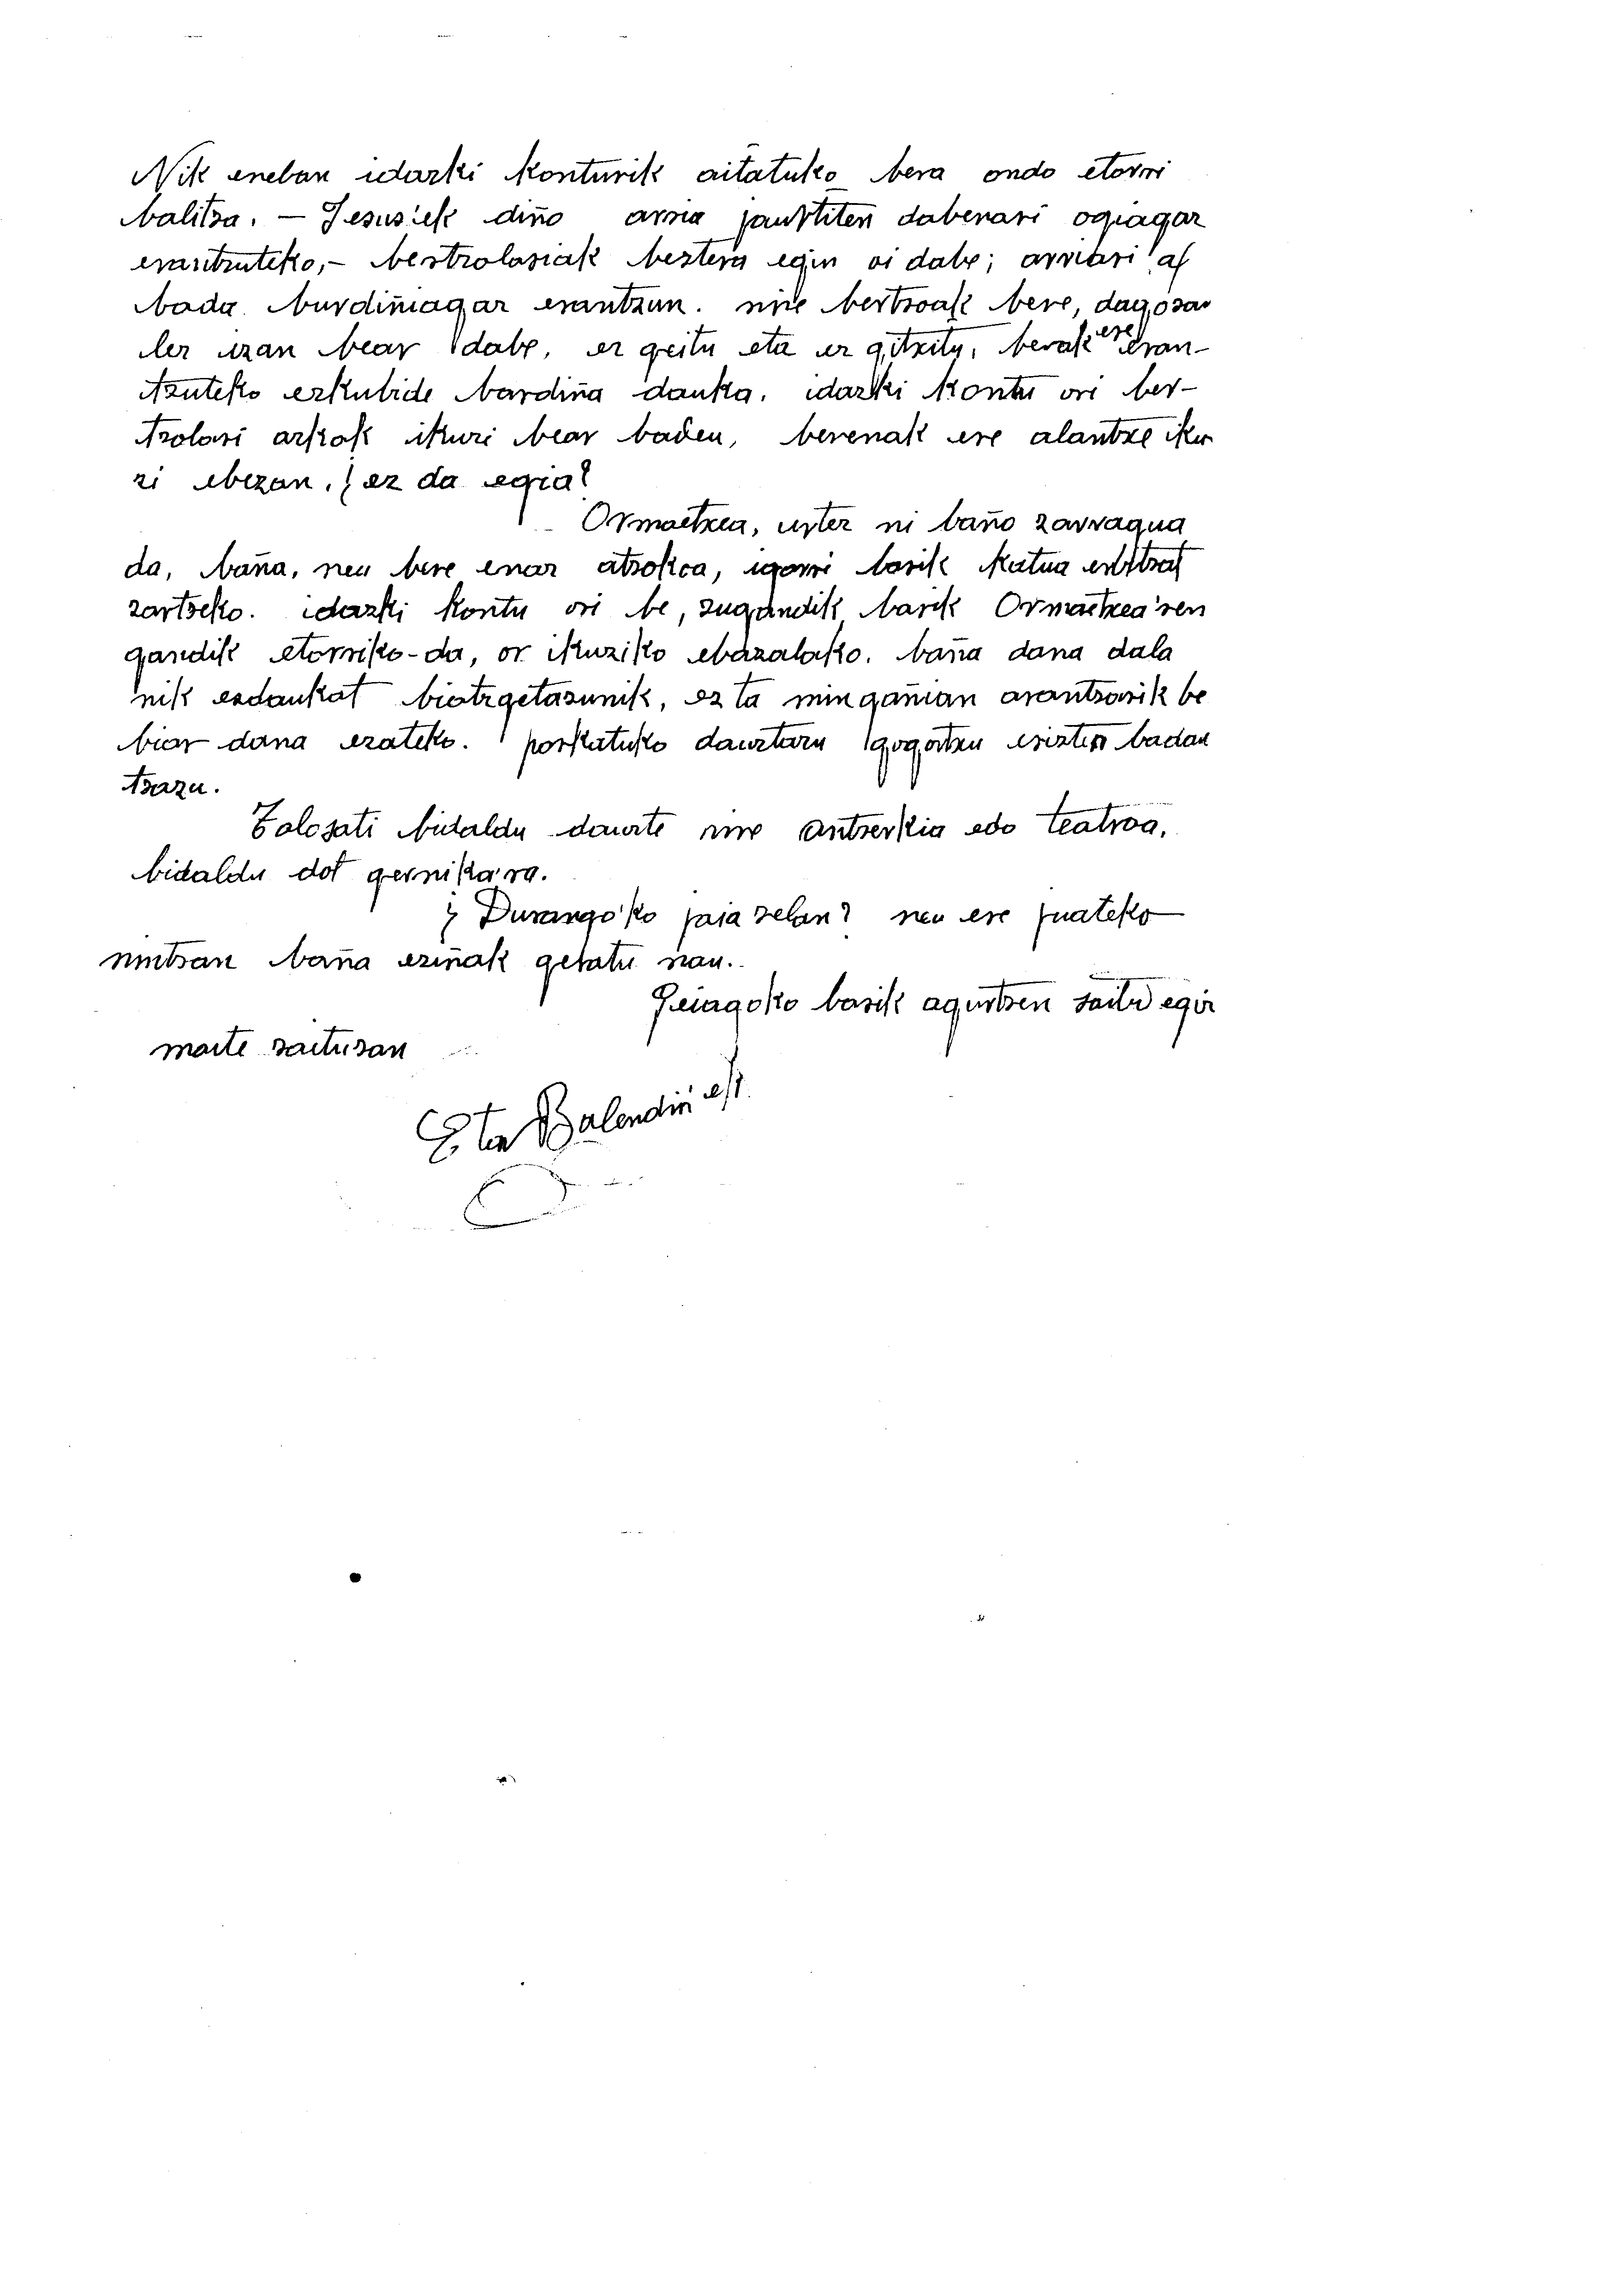 Nik eneban idazki konturik aitatuko bera ondo etorri
balitza. — Jesus'ek diño arria jaurtiten dabenari ogiagaz
erantzuteko,- bertsolariak bestera egin oi dabe; arriari al
bada burdiñagaz erantzun. nire bertsoak bere, dagozan
lez izan bear dabe, ez geitu eta ez gitxitu, berak ere eran-
tzuteko eskubide bardiña dauka. idazki kontu ori ber-
tsolari askok ikuzi bear baden, berenak ere alantxe iku
zi ebezan. ¿ez da egia?
Ormaetxea, uste ni baño zarragua
da, baña, neu bere enaz atzokoa, igarri barik katua
zartzeko. idazki kontu ori be, zugandik barik Ormaetxea'ren
gandik etorriko-da, or ikuziko ebazalako. baña dana dala
nik ezdaukat biotzgetasunik, ez ta mingañian arantzarik be
biar dana esateko. parkatuko daustazu gogortxu erizten badau
tzazu.
Tolosati bidaldu dauste nire antzerkia edo teatroa,
bidaldu dot gernika'ra.
¿ Durango'ko jaia zelan? neu ere juateko
nintzan baña ezinak geratu nau.
Geiagoko barik agurtzen zaitu egiz
maite zaituzan
Eta Balendin'ek